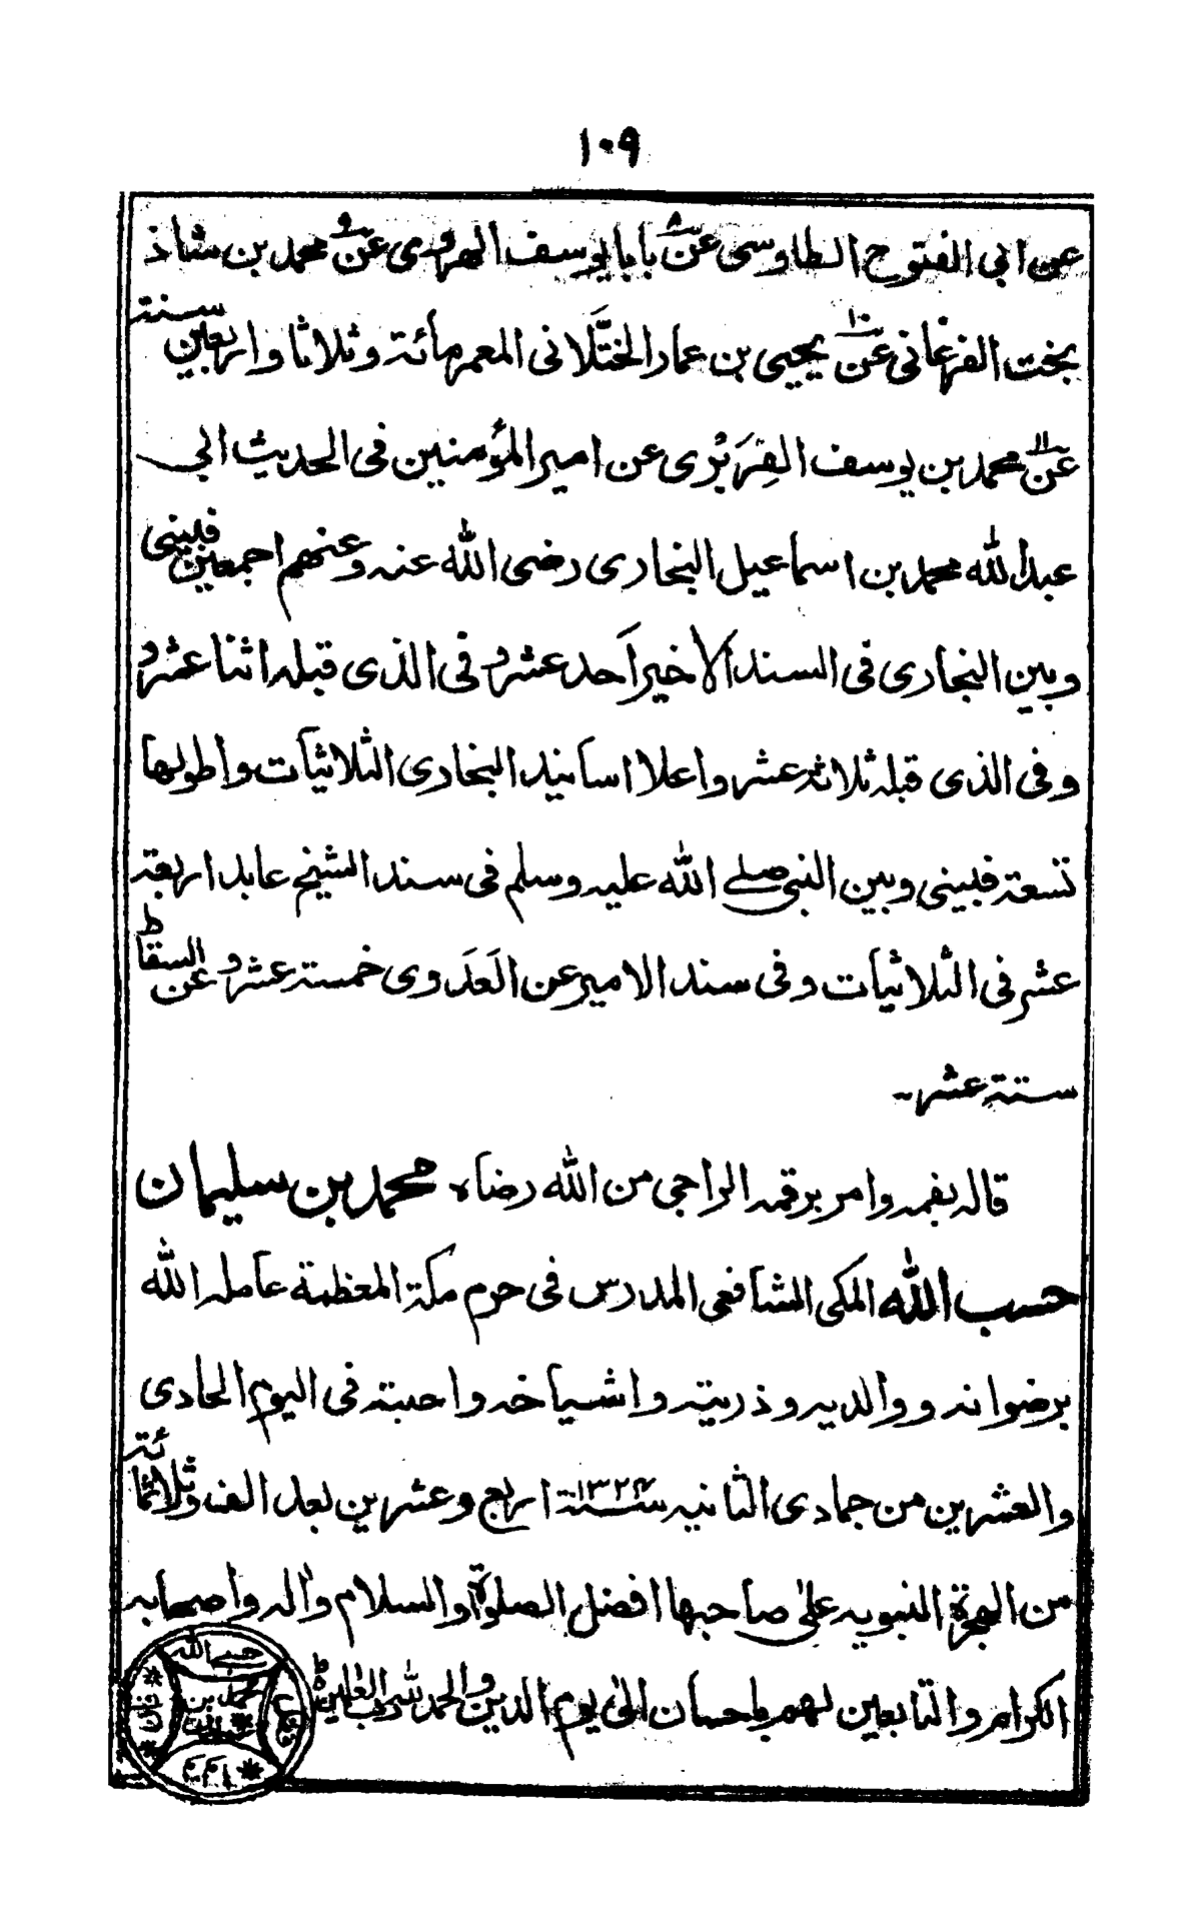 ١٠٩
عن ابي الفتوح الطاوسي عن ٨ بابا يوسف الهروي عن ٩ محمد بن شاذ
بخت الفرغاني عن ١٠ يحيى بن عمار الختّلاني المعمر مائة وثلاثا واربعين سنة
عن ١١ محمد بن يوسف الفِرَبْري عن امير المؤمنين في الحديث ابي
عبد الله محمد بن اسماعيل البخاري رضى الله عنه وعنهم اجمعين فبيني
وبين البخاري في السند الاخير اَحد عشر و في الذي قبله اثنا عشر و
وفي الذي قبله ثلاثة عشر واعلا اسانيد البخاري الثلاثيّات واطولها
تسعة فبيني وبين النبي صلى الله عليه وسلم في سند الشيخ عابد اربعة
عشر في الثلاثيات وفي سند الامير عن العَدَوي خمسة عشر و عن السقاط
ستة عشر ۔
قاله بفمه وامر برقمه الراجي من الله رضاه محمد بن سليمان
حسب الله المكي الشافعي المدرس في حرم مكة المعظمة عامله الله
برضوانه ووالديه وذريته واشياخه واحبته في اليوم الحادي
والعشرين من جمادى الثانيه سنة ١٣٢٤ اربع وعشرين بعد الف وثلاثمائة
من الهجرة النبويه على صاحبها افضل الصلوة والسلام واله واصحابه
الكرام والتابعين لهم باحسان الى يوم الدين والحمد لله رب العلمين
حسب الله
محمد بن